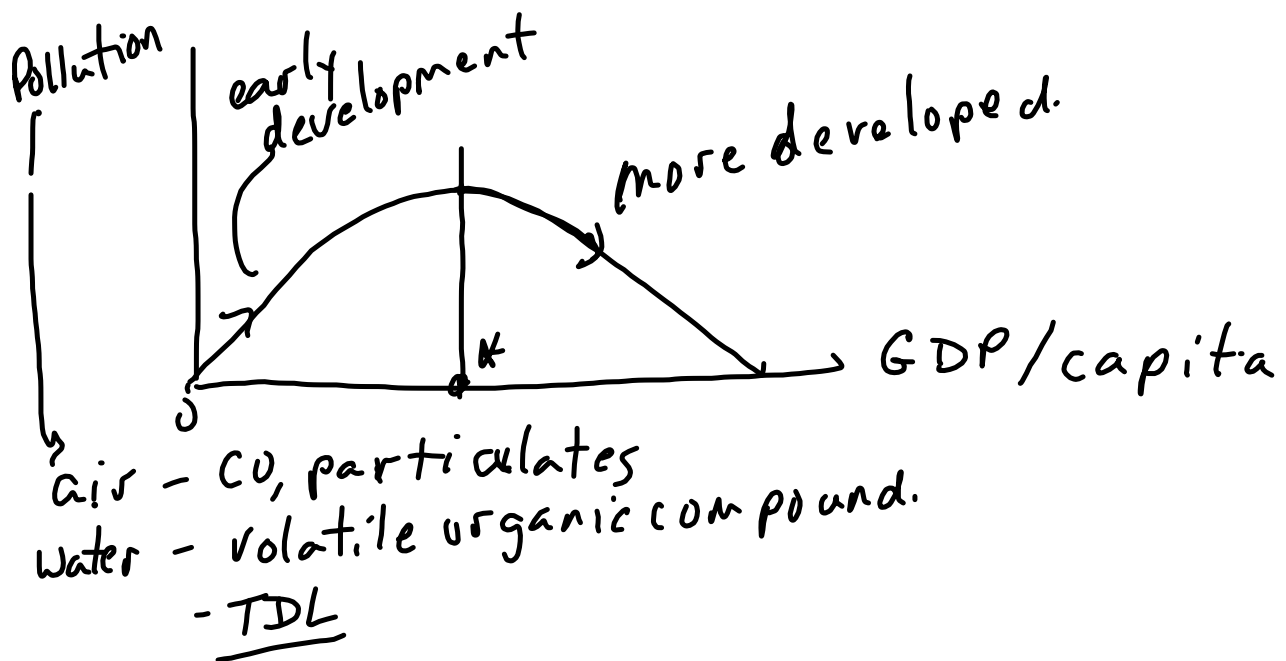 Pollution
early
development
more developed.
*
GDP/capita
0
air - CO, particulates
water - volatile organic compound.
- TDL